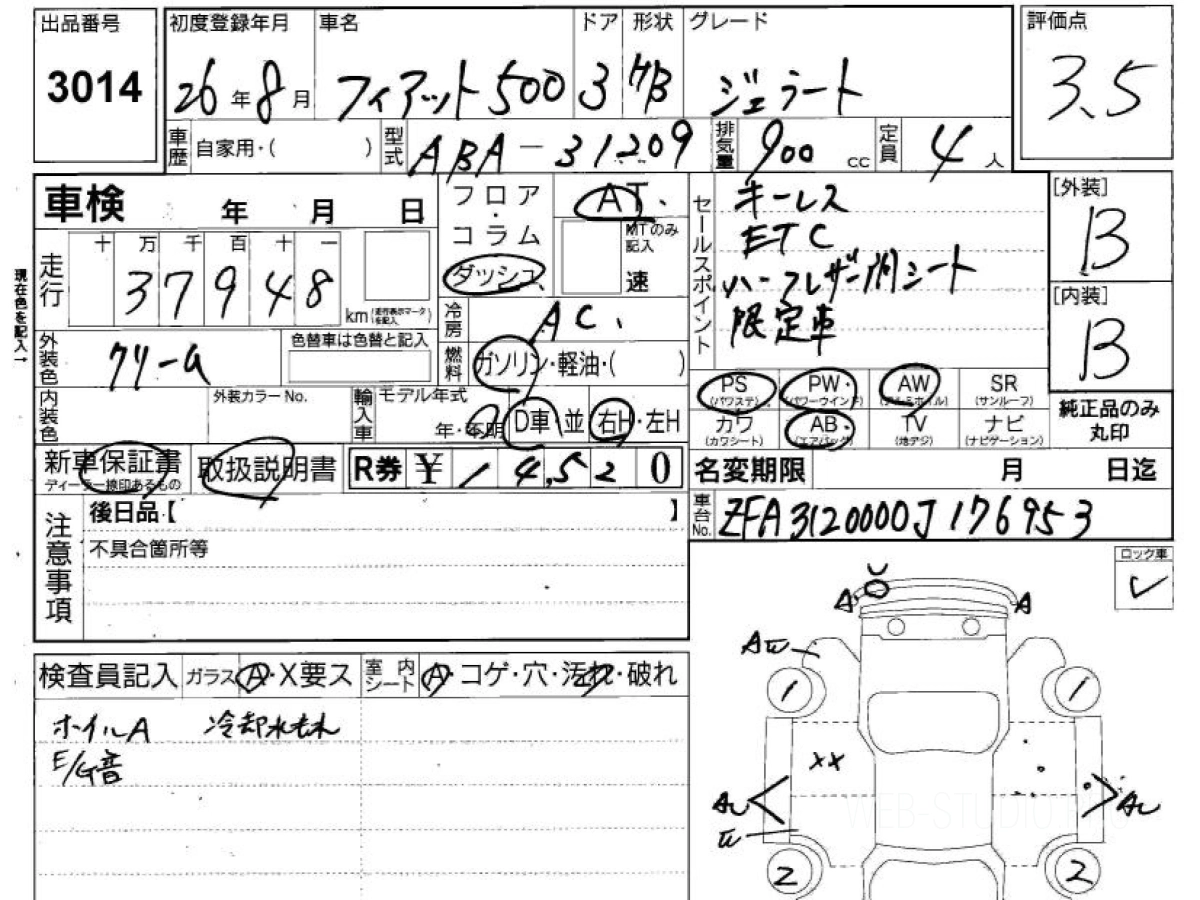 出品番号 初度登録年月 車名 ドア 形状 グレード 評価点
3014 26年8月 フィアット500 3 HB ジェラート 3.5
車歴 自家用・( ) 型式 ABA-31209 排気量 900cc 定員 4人
車検 年 月 日
フロア・コラム ダッシュ AT. MTのみ記入 速
セールスポイント キーレス
ETC
ハーフレザー調シート
限定車
[外装] B
[内装] B
純正品のみ丸印
現在色を記入→
走行 十 万 千 百 十 一
37948 km (走行表示マークを記入)
冷房 AC.
外装色 クリーム 色替車は色替と記入
燃料 ガソリン・軽油・( )
PS (パワステ) PW (パワーウインド) AW (アルミホイル) SR (サンルーフ)
カワ (カワシート) AB (エアバッグ) TV (地デジ) ナビ (ナビゲーション)
内装色 外装カラーNo. 輸入車 モデル年式 年・不明 D車・並 右H・左H
新車保証書 ディーラー捺印あるもの 取扱説明書 R券 ¥ 14,520
名変期限 月 日迄
車台No. ZFA3120000J176953
注意事項 後日品【 】
不具合箇所等
ロック車 ✓
検査員記入 ガラス A・X要ス 室内シート A・コゲ・穴・汚れ・破れ
ホイルA 冷却水もれ
E/G音
U
A A
AU
1 1
XX
AU AU
U
2 2
WEB-STUDIO.PRO